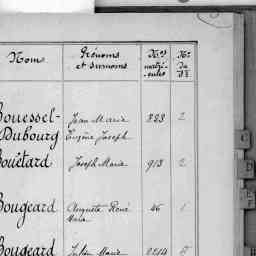 Noms Prénoms et surnoms Nos matri- cules No du
Bouessel- Jean Marie 883 2
Dubourg Eugène Joseph
Bouëtard Joseph Marie 913 2
Bougeard Auguste René 46 1
Marie
Bougeard Julien Marie 2214